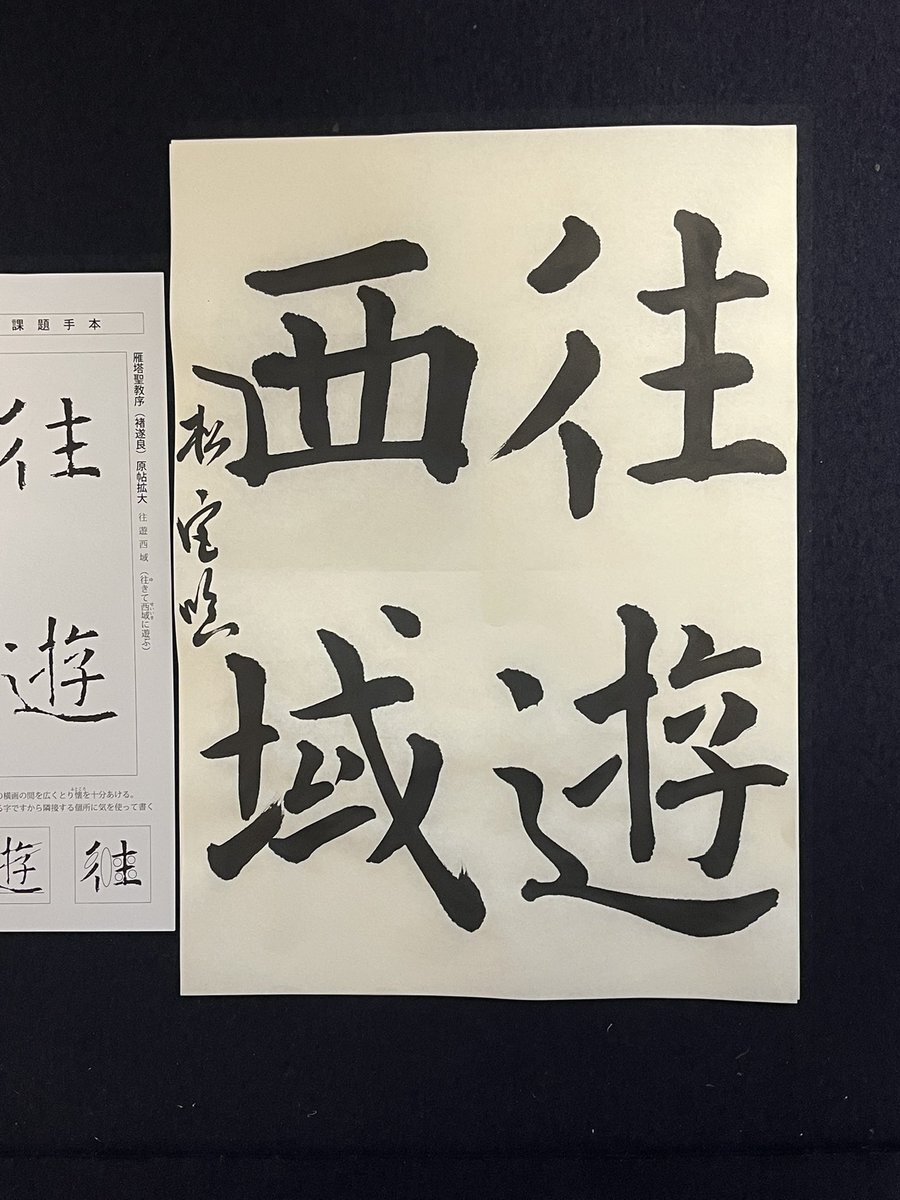 往遊
西域
松
課題手本
雁塔聖教序（褚遂良）原帖拡大 往遊西域（往きて西域に遊ぶ）
往遊
の横画の間を広くとり懐を十分あける。
る字ですから隣接する個所に気を使って書く
遊 往